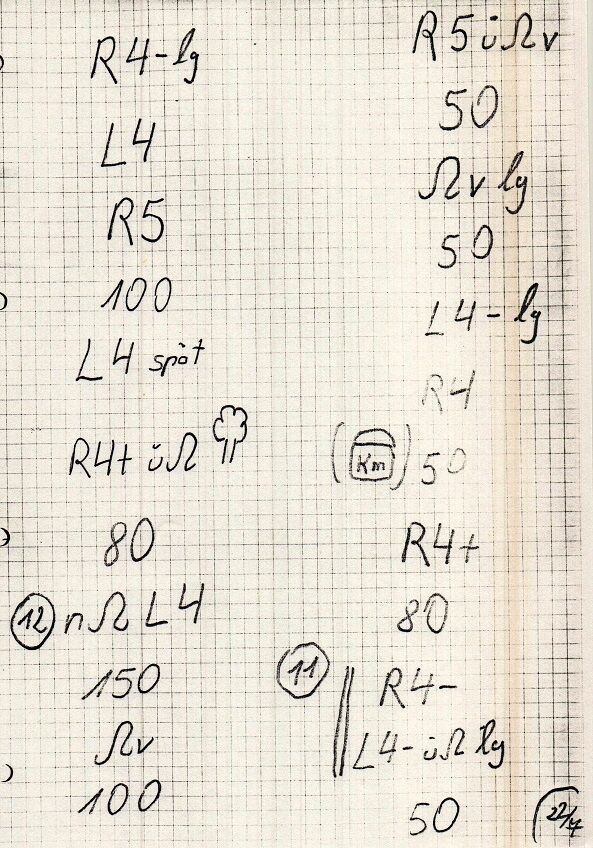 R4-lg
L4
R5
100
L4 spät
R4+ üΩ
80
12 nΩ L4
150
Ωv
100
R5 üΩv
50
Ωv lg
50
L4-lg
R4
(Km) 50
R4+
80
11 R4-
L4-üΩ lg
50
22/7